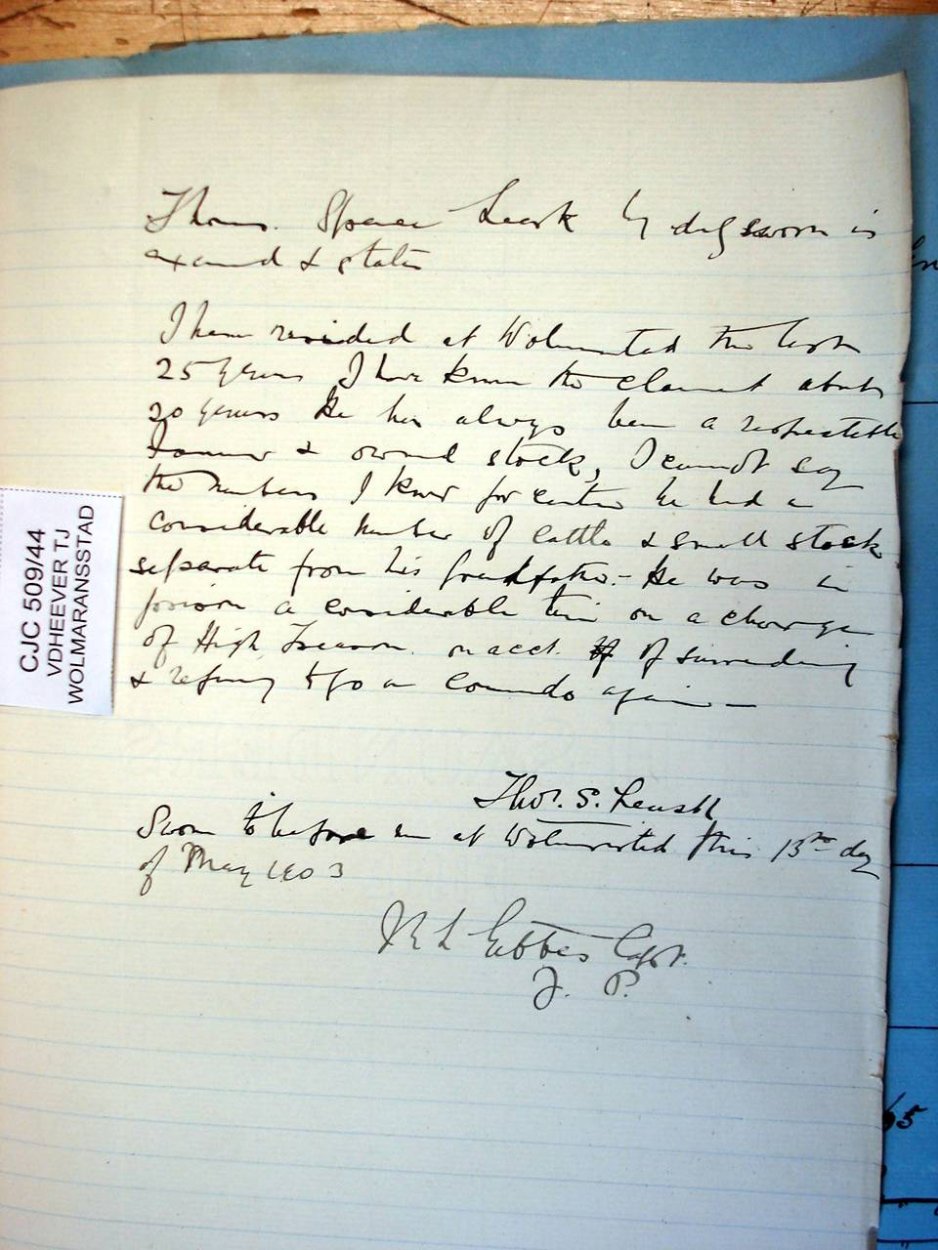 Thomas Spence Leask by duly sworn is
examd & states
I have resided at Wolmunsted the last
25 years I have known the claimant about
20 years He has always been a respectable
Farmer & owned stock, I cannot say
the numbers I know for certain he had a
considerable number of cattle & small stock
separate from his grandfather - He was in
prison a considerable time on a charge
of High Treason on acct. of surrendering
& refusing to go on Comndo again —
Thos. S. Leask
Sworn to before me at this 13th day
of May 1903
Gibbes Capt.
J. P.
CJC 509/44
VDHEEVER TJ
WOLMARANSSTAD
65